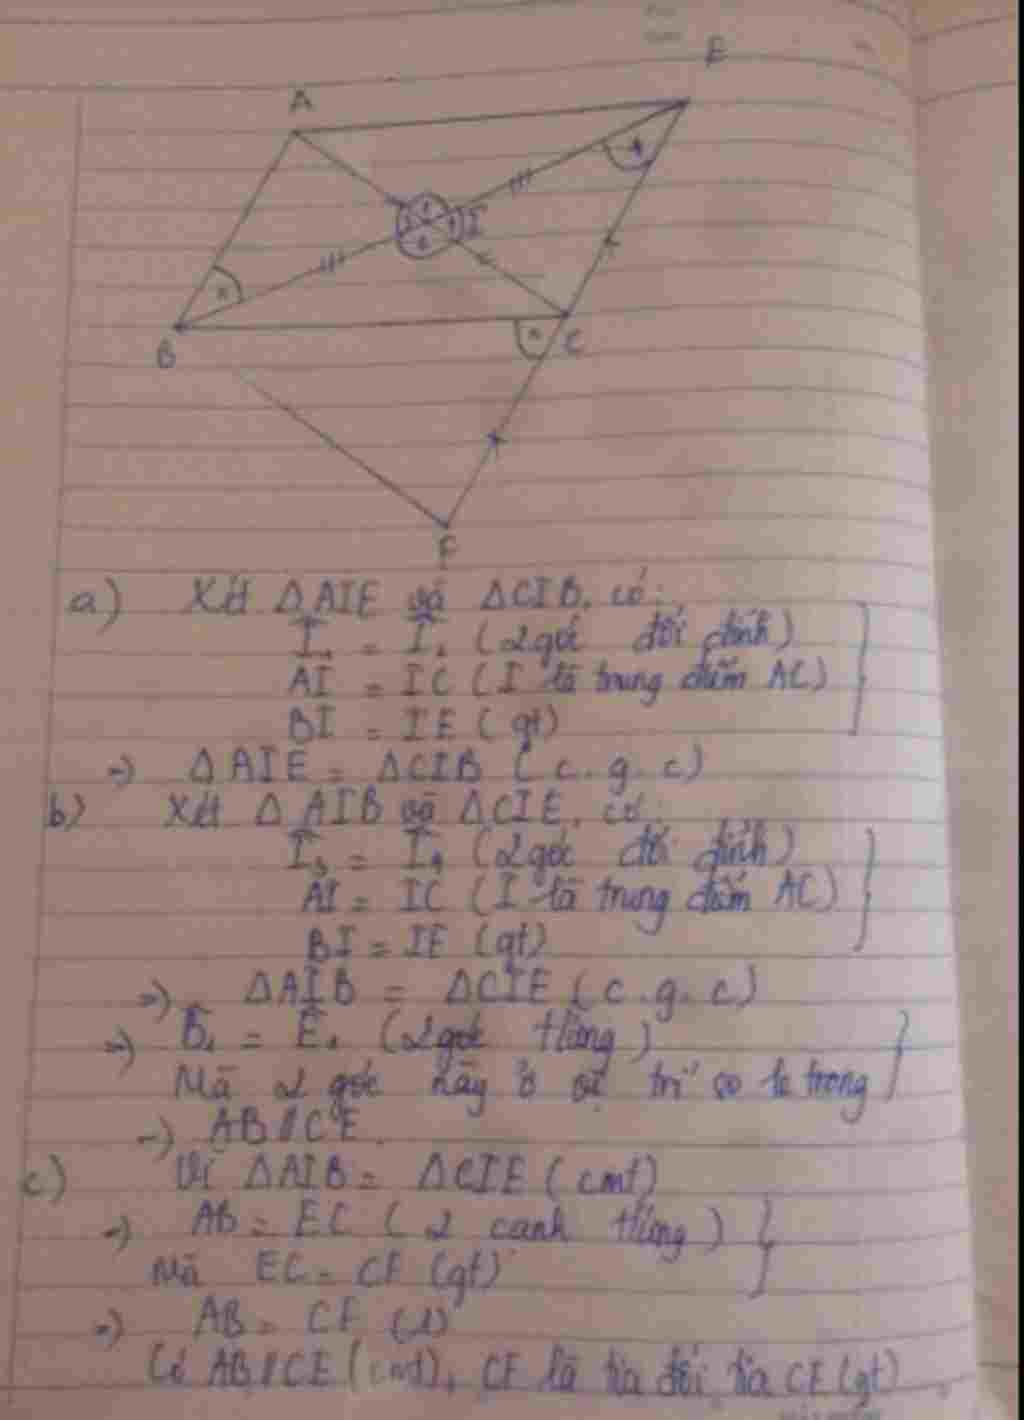 A
E
I
B
C
F
a) Xét ΔAIE và ΔCIB, có:
Î₁ = Î₂ (2 góc đối đỉnh)
AI = IC (I là trung điểm AC)
BI = IE (gt)
=> ΔAIE = ΔCIB (c.g.c)
b) Xét ΔAIB và ΔCIE, có:
Î₃ = Î₄ (2 góc đối đỉnh)
AI = IC (I là trung điểm AC)
BI = IE (gt)
=> ΔAIB = ΔCIE (c.g.c)
=> B̂₁ = Ê₁ (2 góc t/ứng)
Mà 2 góc này ở vị trí so le trong
=> AB // CE.
c) Vì ΔAIB = ΔCIE (cmt)
=> AB = EC (2 cạnh t/ứng)
Mà EC = CF (gt)
=> AB = CF (1)
Có AB // CE (cmt), CF là tia đối tia CE (gt)